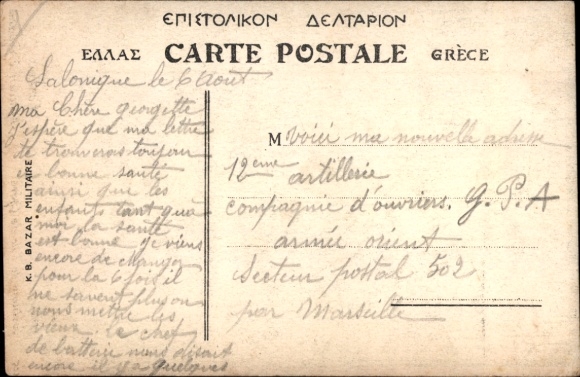 ΕΠΙΣΤΟΛΙΚΟΝ ΔΕΛΤΑΡΙΟΝ
ΕΛΛΑΣ CARTE POSTALE GRÈCE
Salonique le 6 Aout
ma Chère georgette
J'espère que ma lettre
te trouveras toujour
bonne santé
ainsi que les
enfants tant qua
moi la santé
est bonne je viens
encore de changer
pour la 6 fois il
ne savent plus ou
nous mettre les
vieux le chef
de batterie nous disait
encore il y a quelques
K. B. BAZAR MILITAIRE
M voici ma nouvelle adresse
12eme artillerie
compagnie d'ouvriers. G. P. A
armée orient
Secteur postal 502
par Marseille